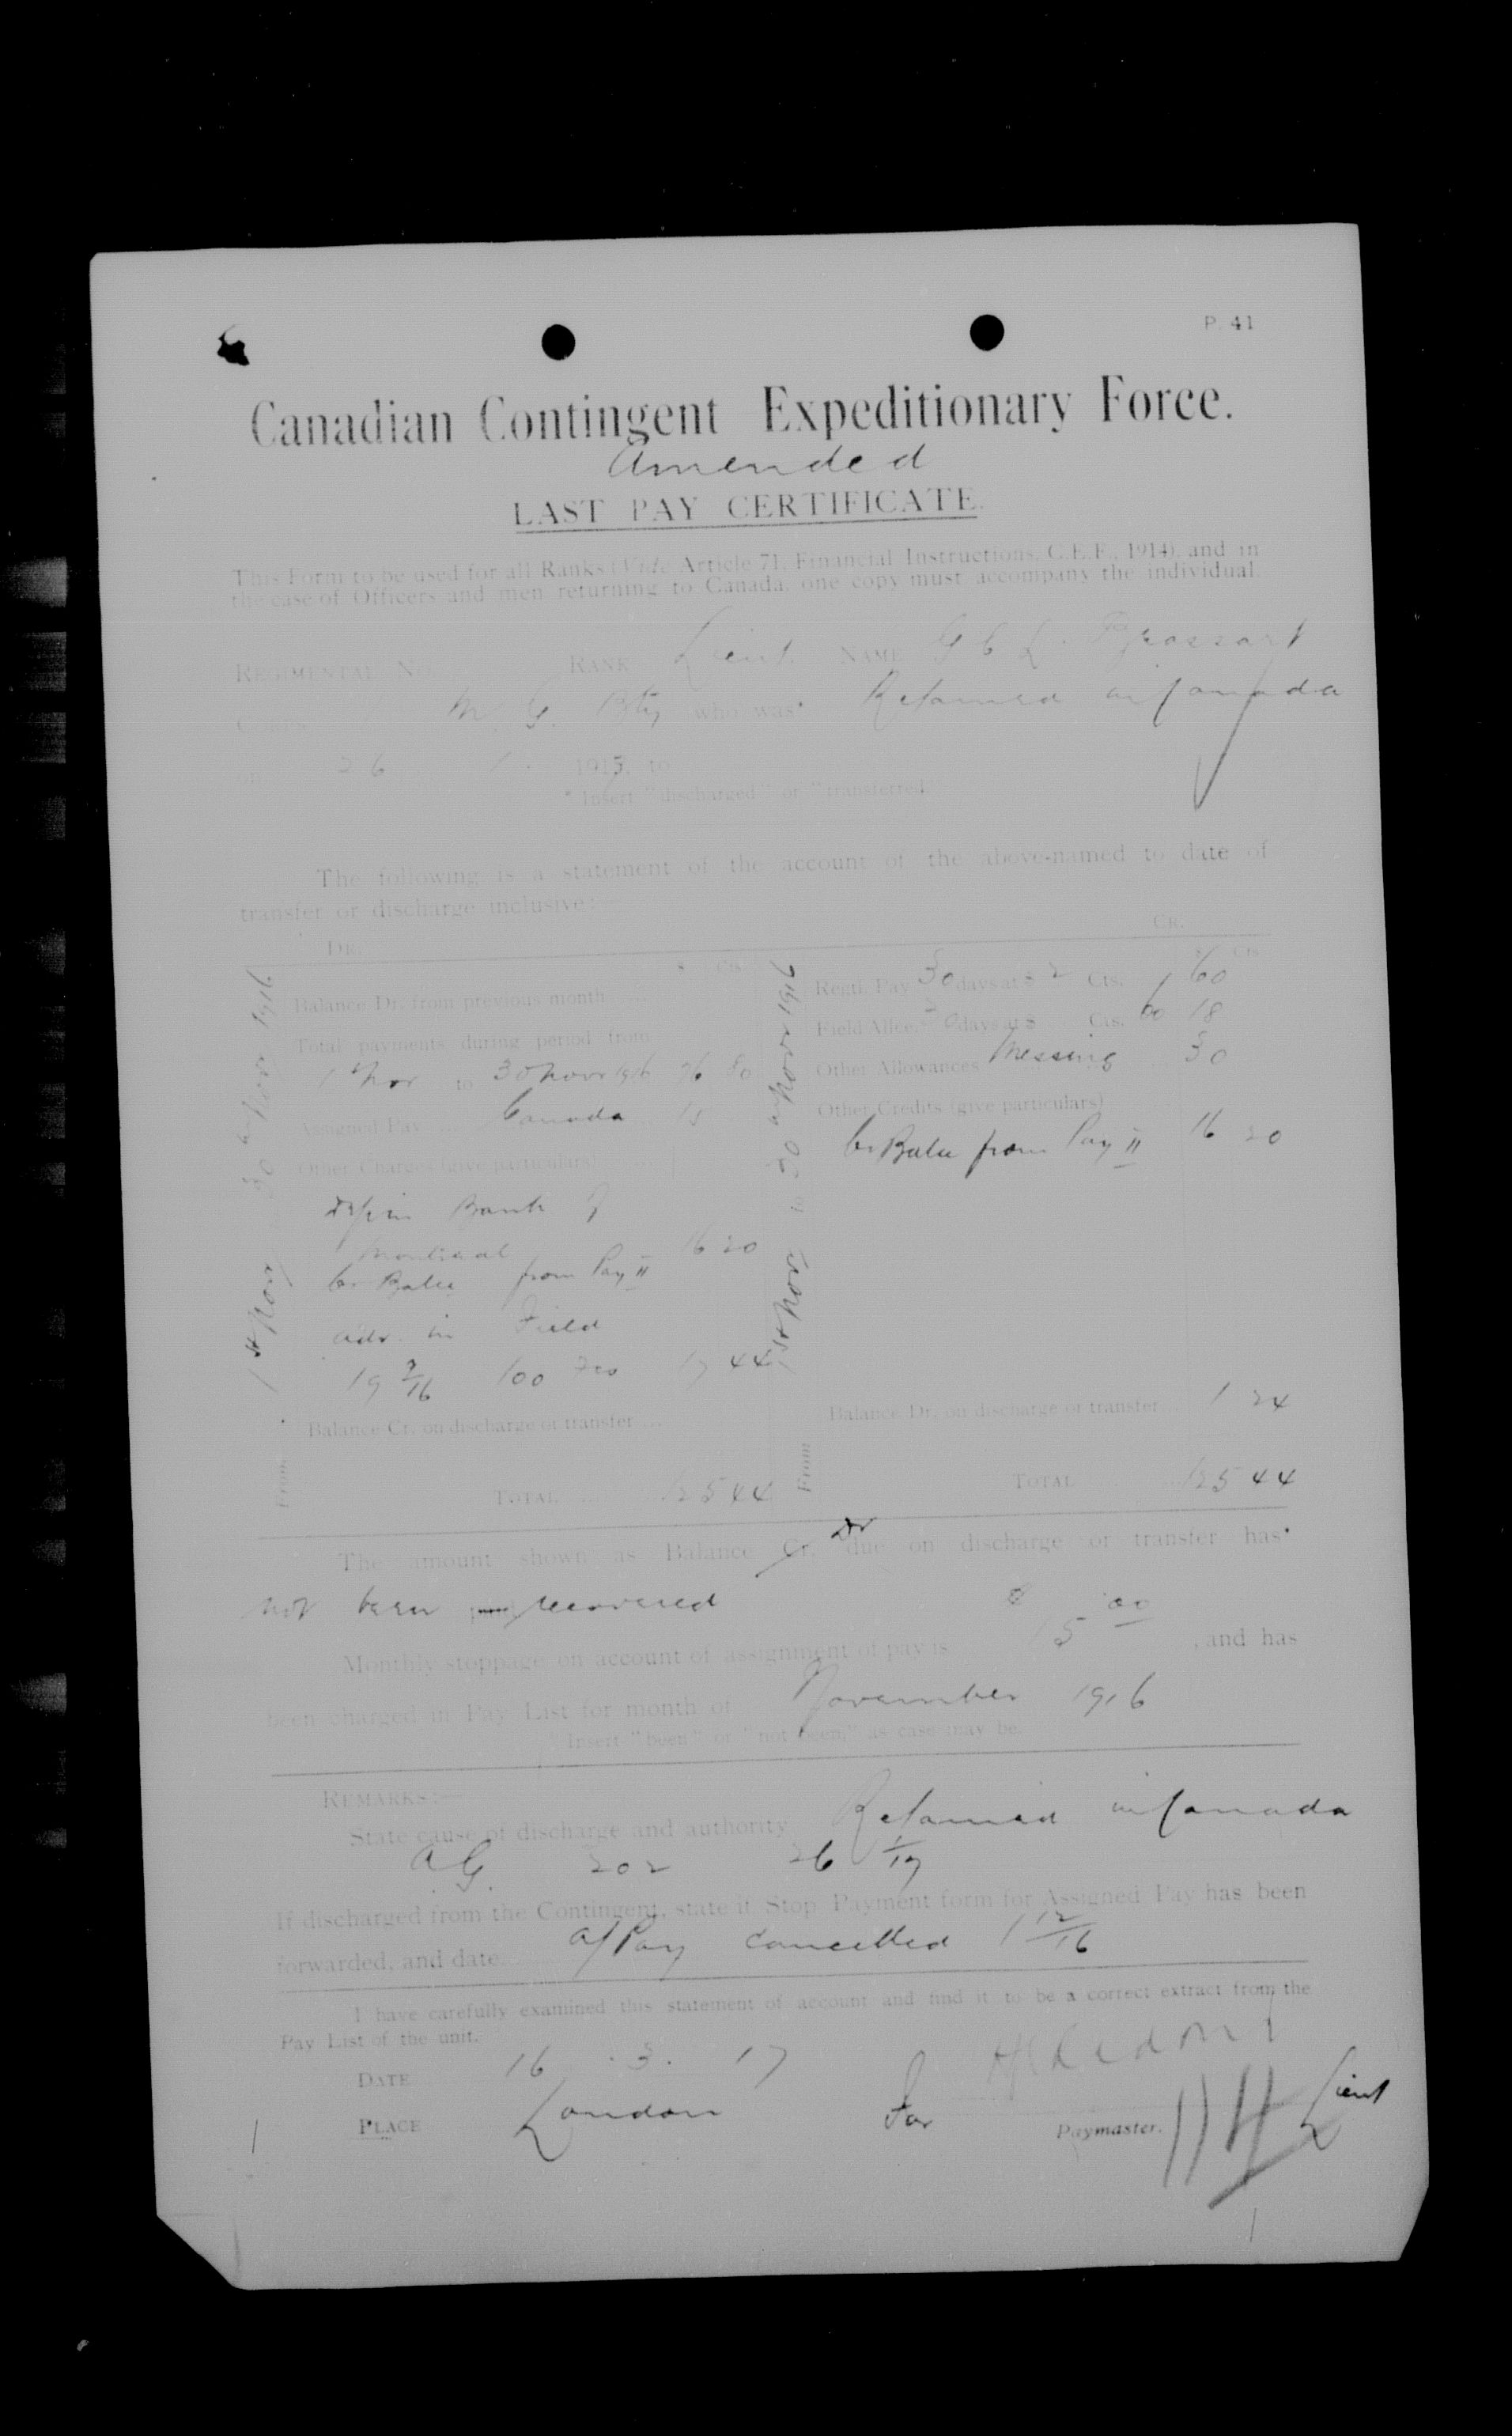 P. 41
Canadian Contingent Expeditionary Force.
Amended
LAST PAY CERTIFICATE.
This Form to be used for all Ranks (Vide Article 71, Financial Instructions, C.E.F., 1914), and in
the case of Officers and men returning to Canada, one copy must accompany the individual.
REGIMENTAL No. RANK Lieut. NAME G C L.
M G. Bty who was* Retained in Canada
on 26 1 191 to
* Insert "discharged" or "transferred."
The following is a statement of the account of the above-named to date of
transfer or discharge inclusive:—
DR. CR.
$ Cts. $ Cts.
From 1st Nov to 30 Novr 1916
Balance Dr. from previous month
Total payments during period from
1st Nov to 30 Novr 1916 76 80
Assigned Pay Canada 15
Other Charges (give particulars)
Bank of
Montreal
Cr Balce from Pay II 16 20
adv. in Field
100 17 44
Balance Cr. on discharge or transfer
TOTAL 125 44
From 1st Nov to 30 Novr 1916
Regtl. Pay 30 days at $ 2 Cts. 60
Field Allce. 30 days at $ Cts. 60 18
Other Allowances Messing 30
Other Credits (give particulars)
Cr Balce from Pay II 16 20
Balance Dr. on discharge or transfer 1 24
TOTAL 125 44
The amount shown as Balance Cr. Dr due on discharge or transfer has*
not been recovered
Monthly stoppage on account of assignment of pay is $ 15 00, and has
been charged in Pay List for month of November 1916
* Insert "been" or "not been," as case may be.
REMARKS:—
State cause of discharge and authority Retained in Canada
A.G. 202 26 1/17
If discharged from the Contingent, state if Stop Payment form for Assigned Pay has been
forwarded, and date. A/Pay cancelled 1 12/16
I have carefully examined this statement of account and find it to be a correct extract from the
Pay List of the unit.
DATE 16 . 3 . 17
PLACE London For Paymaster. Lieut